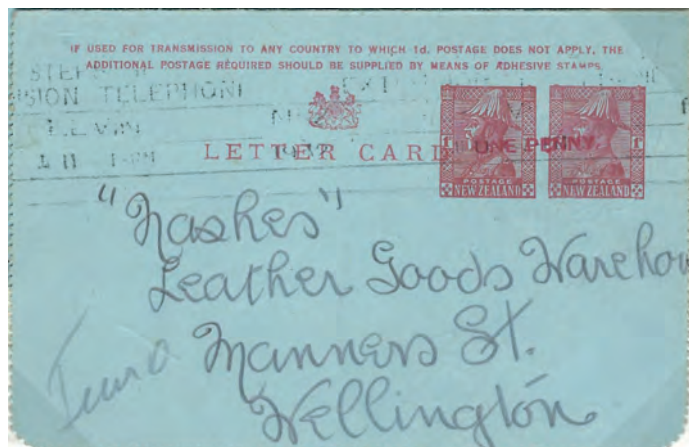 IF USED FOR TRANSMISSION TO ANY COUNTRY TO WHICH 1d. POSTAGE DOES NOT APPLY, THE
ADDITIONAL POSTAGE REQUIRED SHOULD BE SUPPLIED BY MEANS OF ADHESIVE STAMPS.
TELEPHONE
LETTER CARD
ONE PENNY.
POSTAGE
NEW ZEALAND
POSTAGE
NEW ZEALAND
"Nashes"
Leather Goods Warehou
Manners St.
Wellington